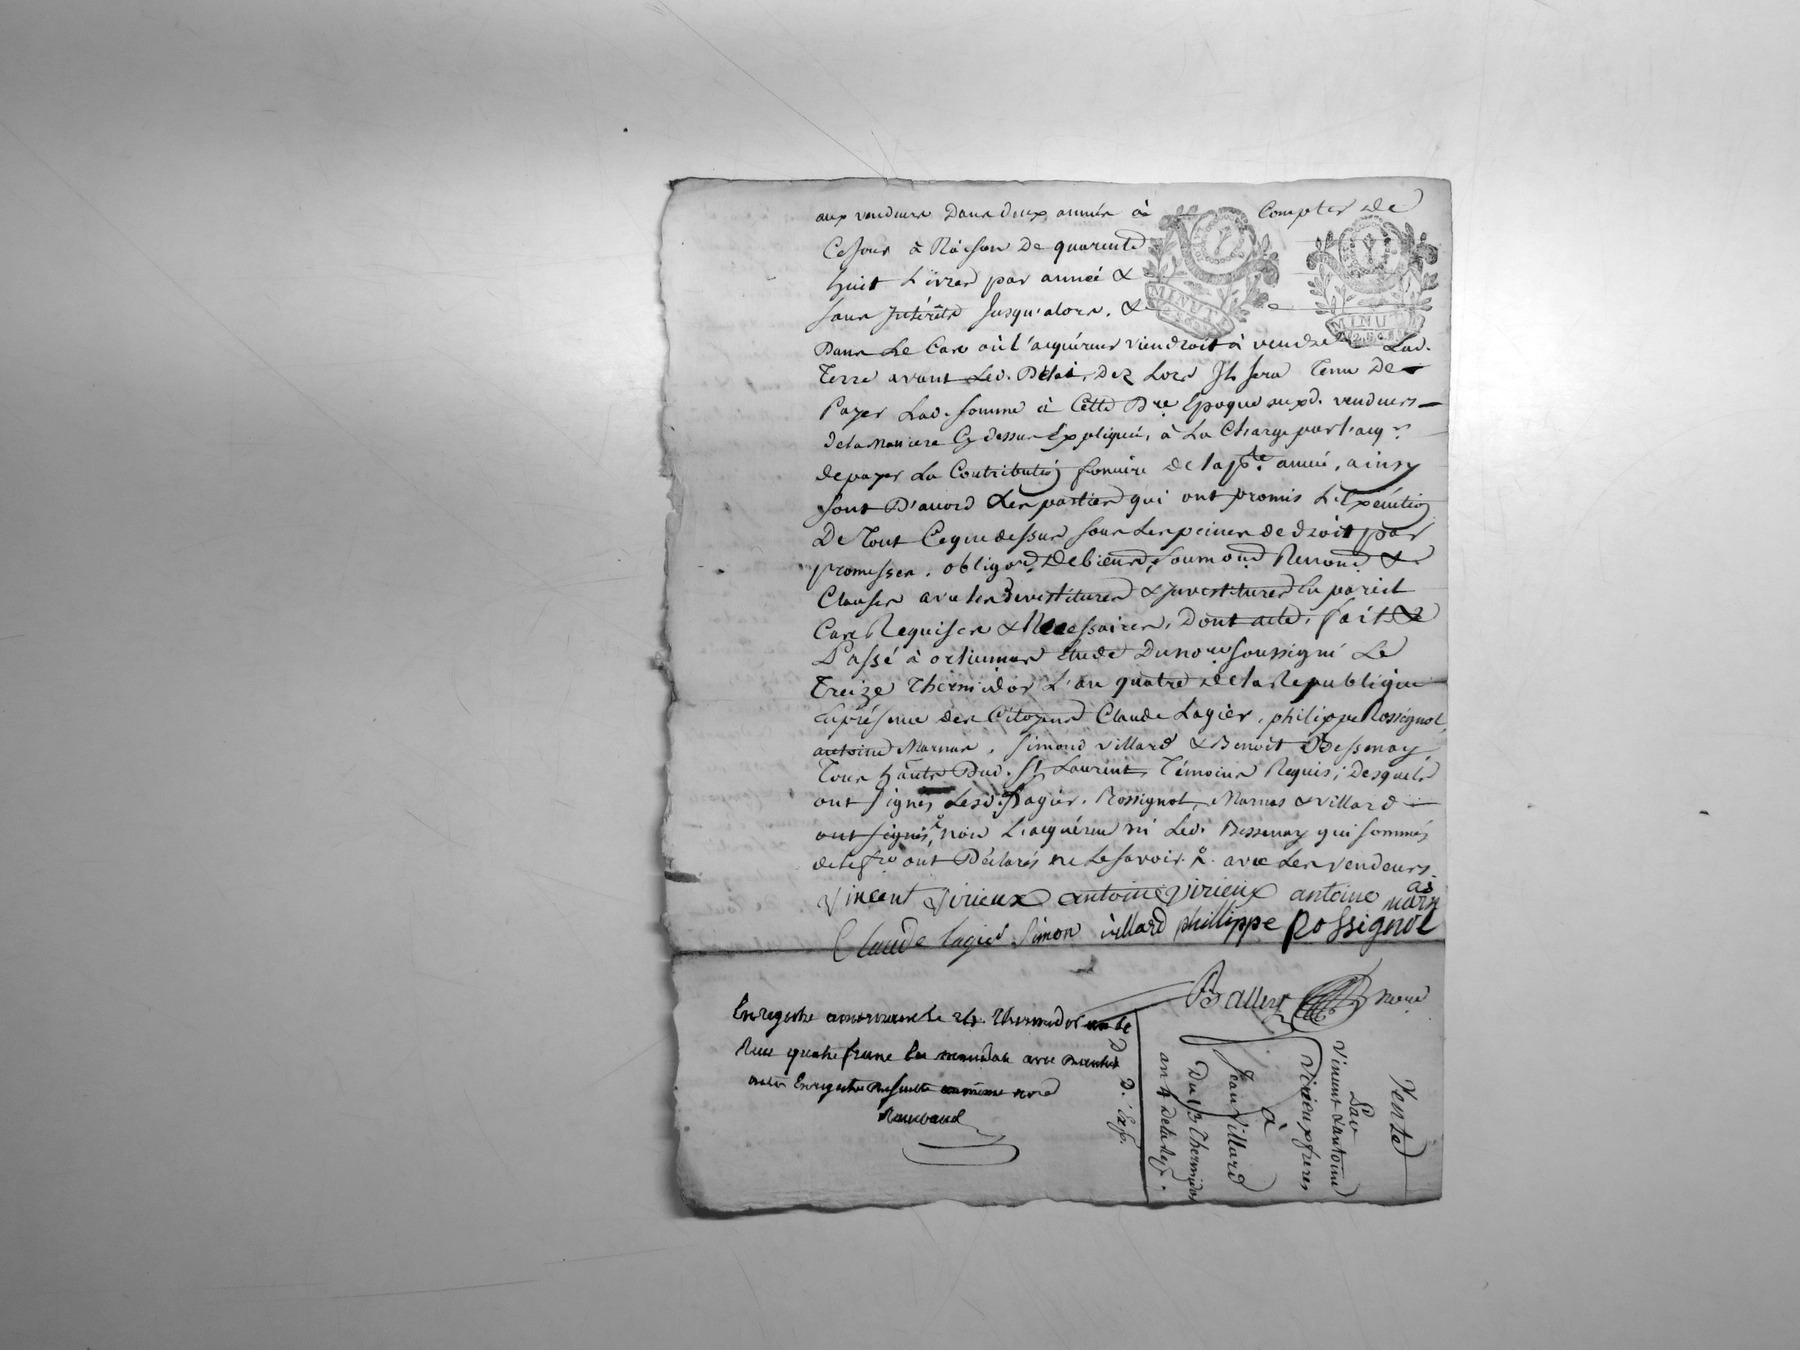 aux vendeurs Dans deux années à Compter de
Ce Jour à Raison De quarente
huit Livres par année &
sans Intérêts Jusqu'alors, & 
MINUTE
MINUTE
Dans Le Cas où l'acquéreur viendroit à vendre Lad.
Terre avant Led. Délai, Dez Lors Il sera Tenu De
Payer Lad. somme à Cette Dre Epoque auxd. vendeurs
de la Maniere Cy dessus Expliquée, à La Charge par l'acqr
de payer La Contribution fonciere de la pnte année, ainsy
sont D'accord Les parties qui ont promis L'Exécution
De Tout Ceque dessus sous Les peines de droit par
promesses, obligaons De biens, soumons Renons &
Clauses avec les devestitures & Investitures En pareil
Cas Requises & Necessaires, Dont acte, fait &
Passé à orlienas Etude Du nore soussigné Le
Treize Thermidor L'an quatre de la Republique
En présence des Citoyens Claude Lagier, philippe Rossignol,
antoine Marnas, Simond villard & Benoit Bessenay
Tous hants Dud. St Laurent, Témoins Requis, Desquels
ont signés Lesd. Lagier, Rossignol, Marnas & villard
ont signés, non L'acquéreur ni Led. Bessenay qui sommés
de le fre ont Déclarés ne Le savoir. avec Les vendeurs.
Vincent Virieux antoine Virieux antoine marnas
Claude lagier Simon villard phillippe Rossignol
Ballet nore
Enregistré a Le 24 Thermidor an 4e
Reçu quatre francs En mandats
Raimbaud
D. Exp.
Vente
Par
Vincent & antoine
Virieux freres
à
Jean Villard
Du 13 Thermidor
an 4 De la Rep.